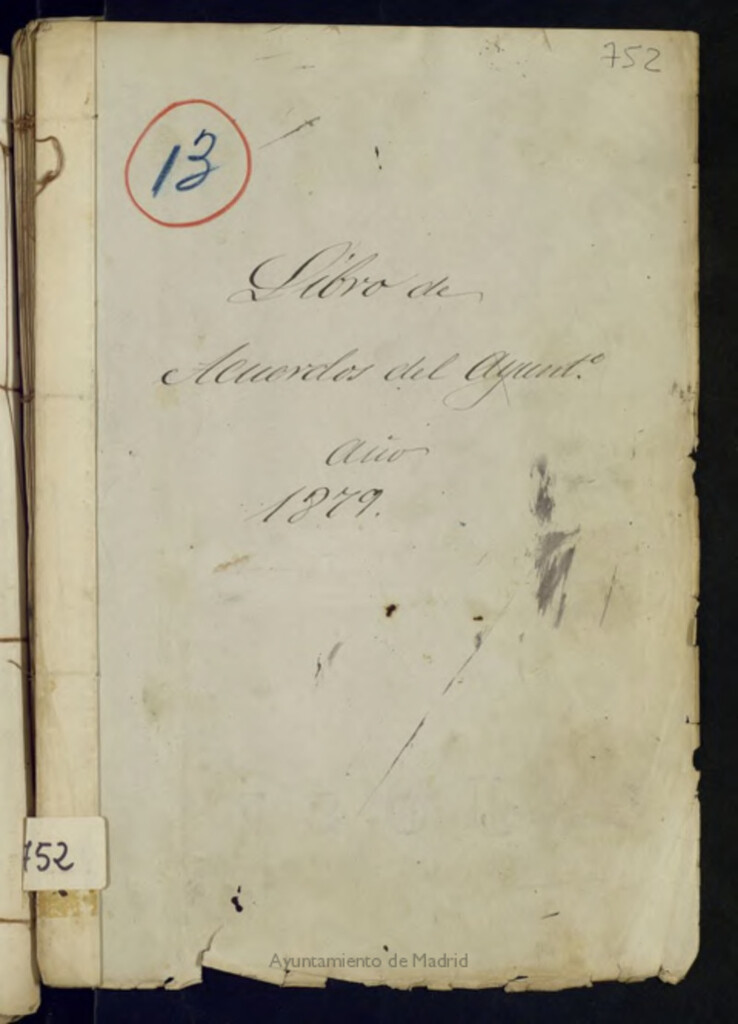 752
13
Libro de
Acuerdos del Ayunt.º
Año
1879.
752
Ayuntamiento de Madrid